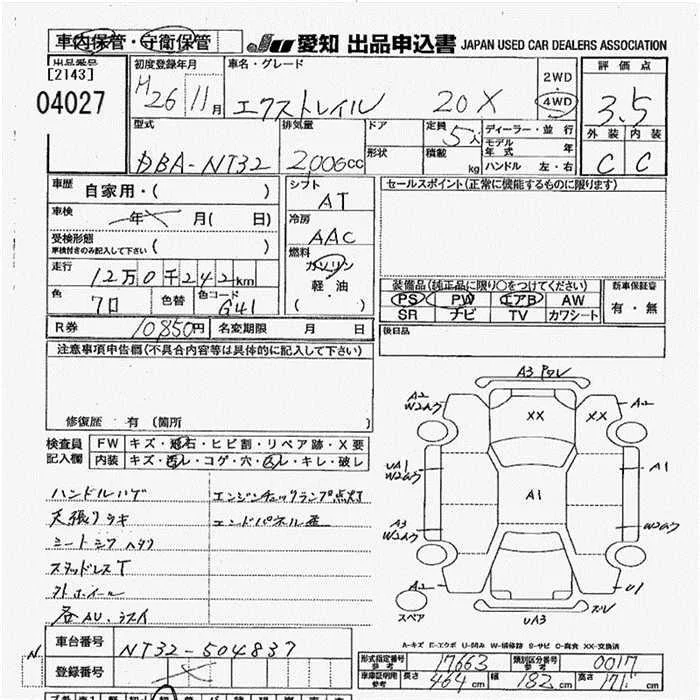 車内保管・守衛保管
JU 愛知 出品申込書 JAPAN USED CAR DEALERS ASSOCIATION
出品番号
[2143]
04027
初度登録年月
H26 11月
車名・グレード
エクストレイル 20X
2WD
4WD
評価点
3.5
外装 内装
C C
型式
DBA-NT32
排気量
2,000cc
ドア
形状
定員
5人
積載
kg
ディーラー・並行
モデル年式 年
ハンドル 左・右
車歴
自家用・( )
車検
年 月( 日)
受検形態
車検付きのみ記入して下さい ( )
走行
12万0千242km
色
クロ
色替
色コード
G41
シフト
AT
冷房
AAC
燃料
ガソリン
軽・油
( )
セールスポイント(正常に機能するものに限ります)
装備品(純正品に限り○をつけてください)
PS PW エアB AW
SR ナビ TV カワシート
新車保証書
有・無
後日品
R券
10850円
名変期限 月 日
注意事項申告欄(不具合内容等は具体的に記入して下さい)
修復歴 有 (箇所 )
検査員
記入欄
FW キズ・飛石・ヒビ割・リペア跡・X要
内装 キズ・汚レ・コゲ・穴・凸レ・キレ・破レ
ハンドルハゲ
エンジンチェックランプ点灯
天張りキズ
エンドパネル歪
シートシワ ヘタリ
スタッドレスT
外ホイール
各AU.ライト
A3 ワレ
A2
W2
XX
XX
A2
UA1
W2
A1
A1
A3
W2
W2
A2
U1
スペア
UA3
A-キズ E-エクボ U-凹み W-補修跡 S-サビ C-腐食 XX-交換済
車台番号
NT32-504837
登録番号
形式指定番号
参考
17663
類別区分番号
参考
0017
車庫証明用
参考
長さ
464cm
幅
182cm
高さ
171cm